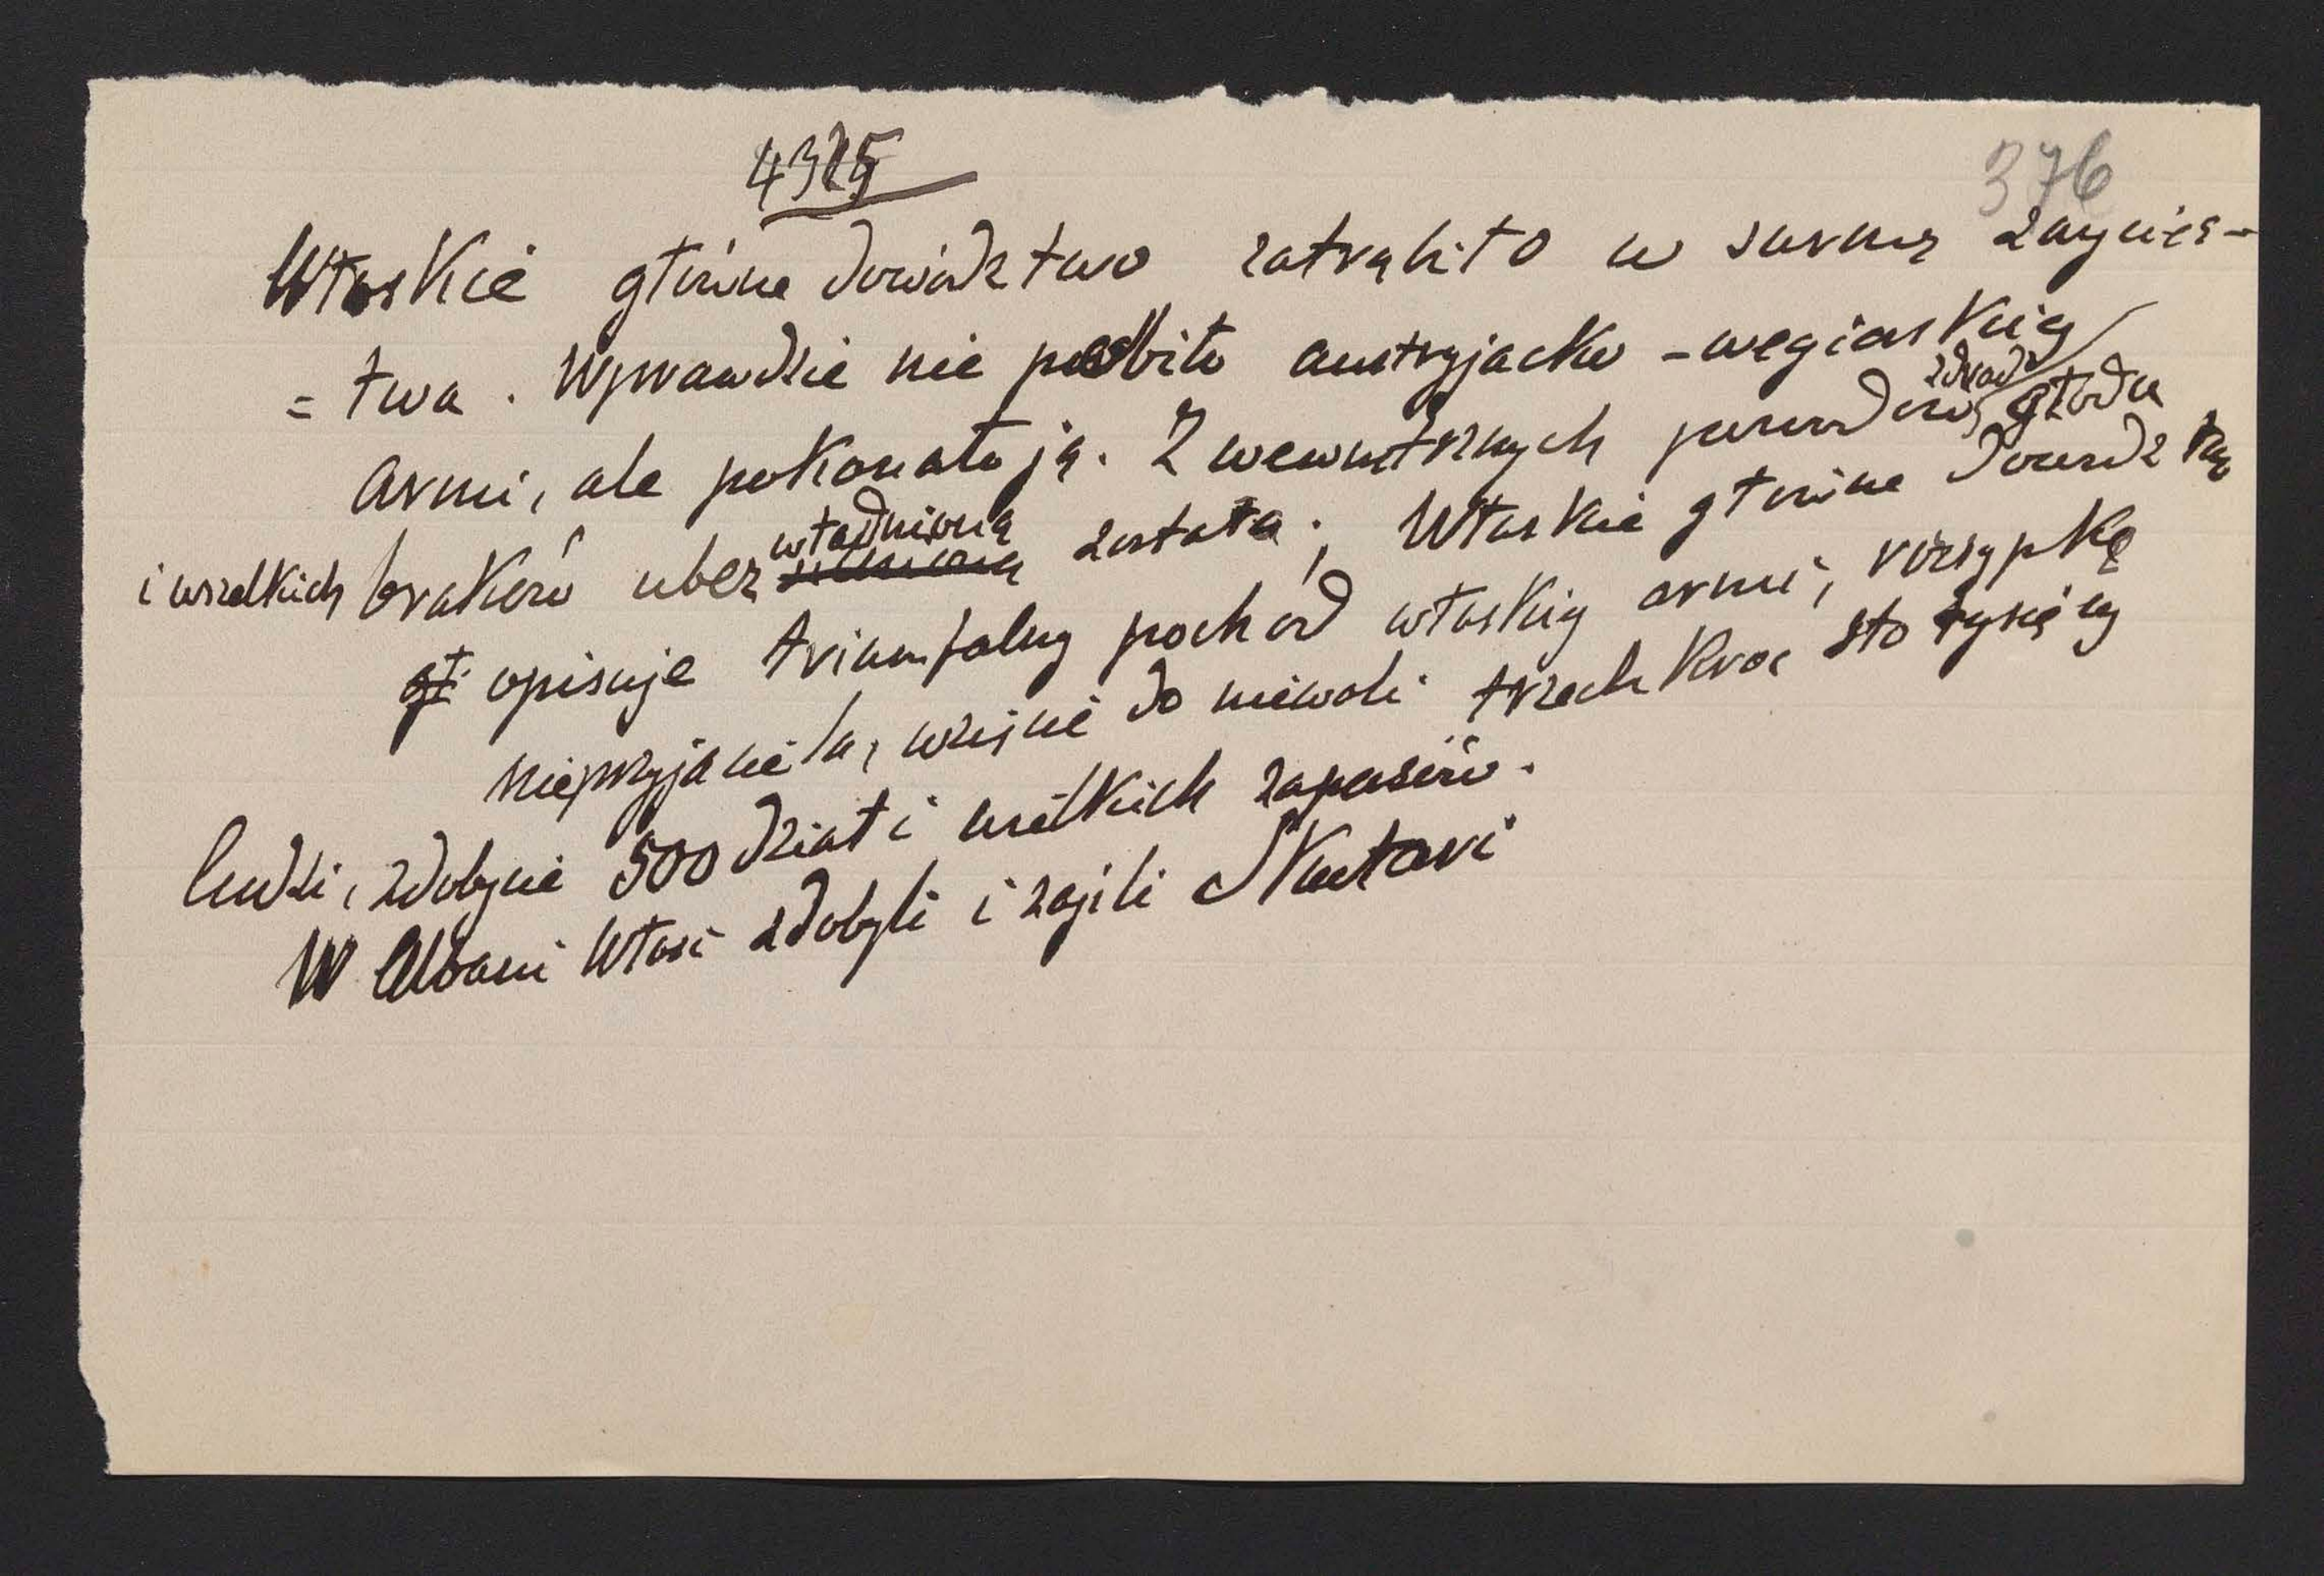 4325
376
Włoskie główne dowództwo zatrąbiło w surmę zwycięs-
= twa. Wprawdzie nie pobito austryjacko-węgierskiej
armi, ale pokonało ją. Z wewnętrznych powodów, zdrady głodu
i wszelkich braków ubezwładnioną została. Włoskie główne dowództwo
gł opisuje triumfalny pochód włoskiej armi, rozsypkę
nieprzyjaciela, wzięcie do niewoli trzech kroć sto tysięcy
ludzi, zdobycie 500 dział i wszelkich zapasów.
W Albani Włosi zdobyli i zajęli Skutari